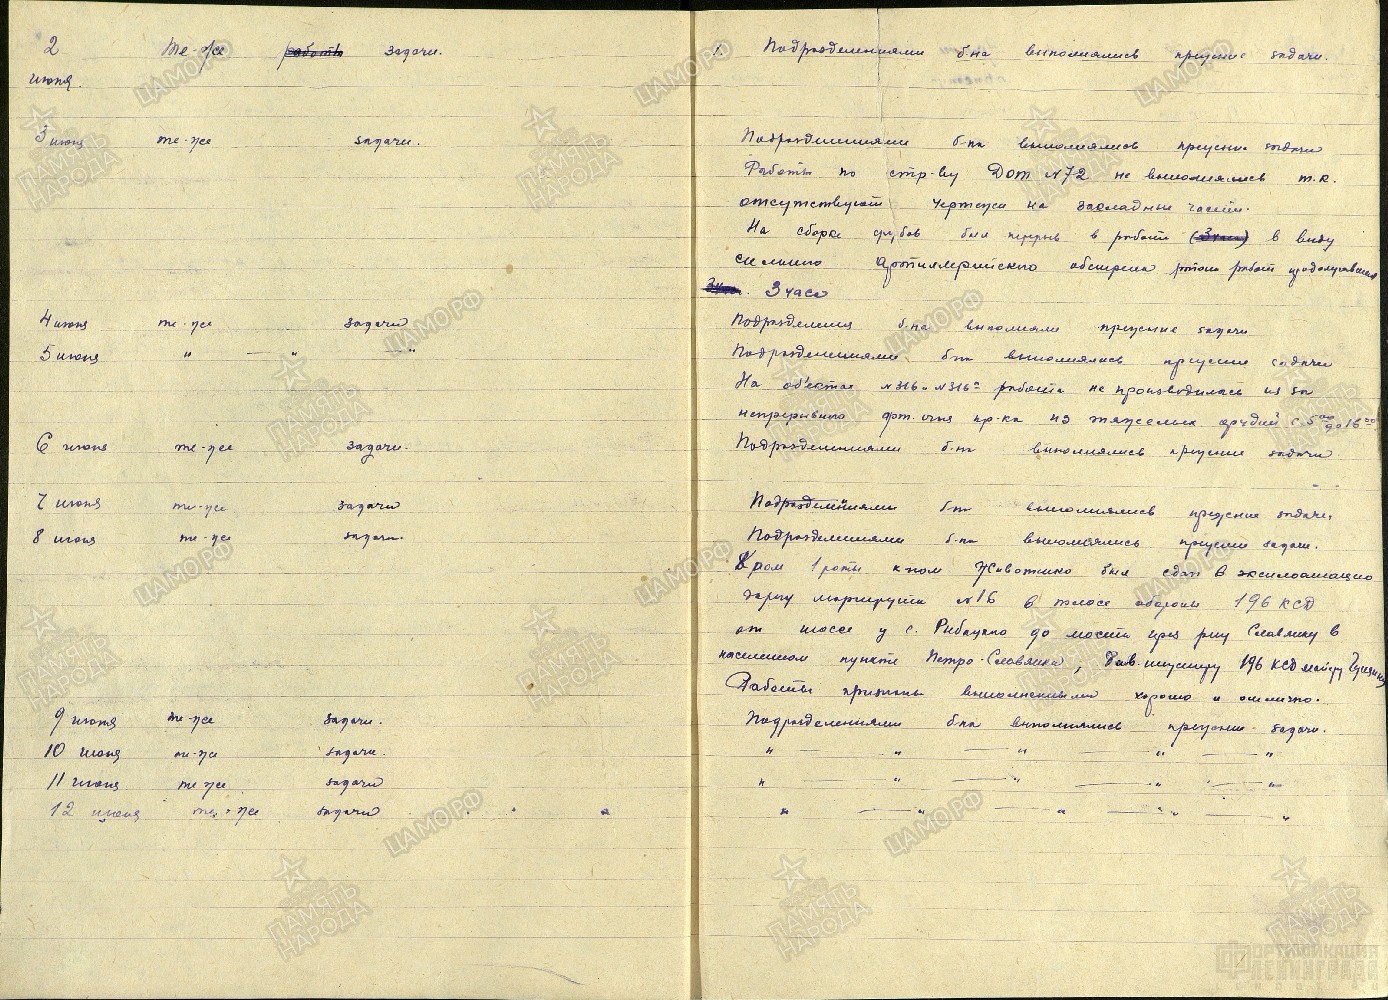 2 июня. те-же работы задачи.
1. Подразделениями б-на выполнялись прежние задачи.
3 июня те-же задачи.
Подразделениями б-на выполнялись прежние задачи
Работы по стр-ву ДОТ №72 не выполнялись т.к.
отсутствуют чертежи на закладные части.
На сборке срубов был перерыв в работе (3 час) в виду
сильного артиллерийского обстрела
3 часа
4 июня те-же задачи
Подразделения б-на выполняли прежние задачи
5 июня " — " — "
Подразделениями б-на выполнялись прежние задачи
На объектах №316 и №316а работа не производилась из за
непрерывного арт. огня пр-ка из тяжелых орудий с 5⁰⁰ до 16⁰⁰
6 июня те-же задачи.
Подразделениями б-на выполнялись прежние задачи
7 июня те-же задачи
Подразделениями б-н выполнялись прежние задачи
8 июня те-же задачи.
Подразделениями б-на выполнялись прежние задачи.
Ком 1 роты к-ном Животенко был сдан в эксплоатацию
маршрута №16 в полосе обороны 196 КСД
от шоссе у с. Рыбацкое до моста через реку Славянку в
населенном пункте Петро-Славянка, Див. инженеру 196 КСД майору
Работы признаны выполненными хорошо и отлично.
9 июня те-же задачи.
Подразделениями б-на выполнялись прежние задачи.
10 июня те-же задачи.
" — " — " — " — "
11 июня те-же задачи
" — " — " — " — "
12 июня те-же задачи
" — " — " — " — "
ПАМЯТЬ НАРОДА
ЦАМО.РФ
ФОРТИФИКАЦИЯ
ЛЕНИНГРАДА